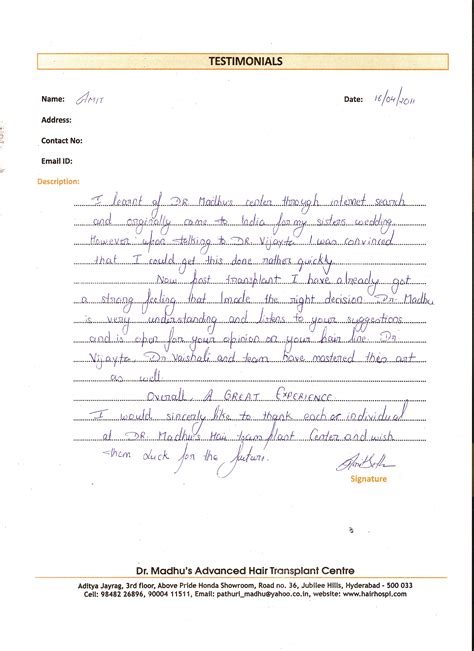 TESTIMONIALS
Name: AMIT Date: 16/04/2011
Address:
Contact No:
Email ID:
Description:
I learnt of DR. Madhu's center through internet search
and originally came to India for my sisters wedding.
However upon talking to DR. Vijayta I was convinced
that I could get this done rather quickly.
Now post transplant I have already got
a strong feeling that I made the right decision. Dr. Madhu
is very understanding and listens to your suggestions
and is open for your opinion on your hair line. Dr
Vijayta, Dr Vaishali and team have mastered this art
as well.
Overall, A GREAT EXPERIENCE.
I would sincerly like to thank each individual
at DR. Madhu's Hair transplant Center and wish
them luck for the future.
Signature
Dr. Madhu's Advanced Hair Transplant Centre
Aditya Jayrag, 3rd floor, Above Pride Honda Showroom, Road no. 36, Jubilee Hills, Hyderabad - 500 033
Cell: 98482 26896, 90004 11511, Email: pathuri_madhu@yahoo.co.in, website: www.hairhospi.com